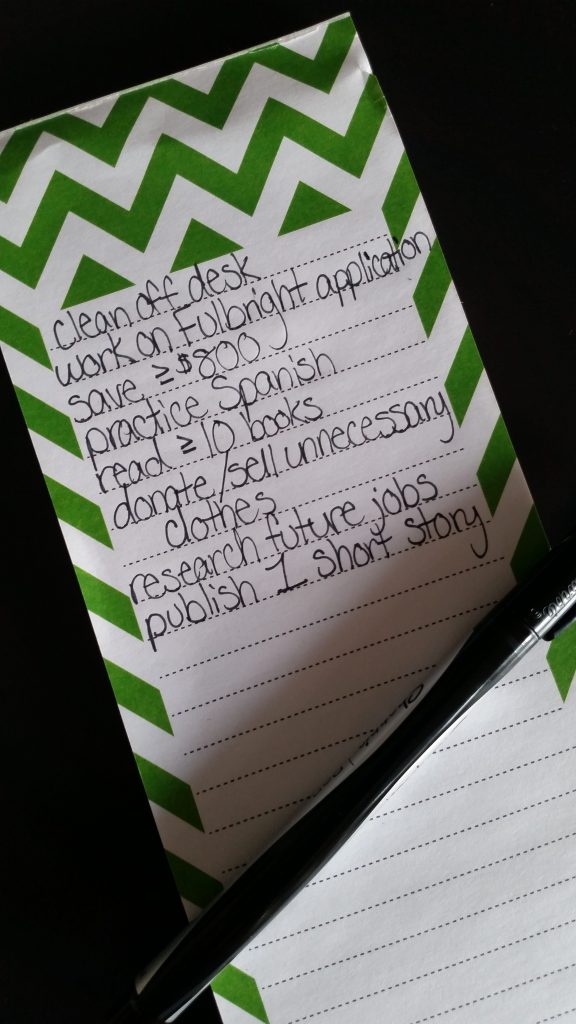 clean off desk
work on Fulbright application
save ≥$800
practice Spanish
read ≥10 books
donate/sell unnecessary
clothes
research future jobs
publish 1 short story